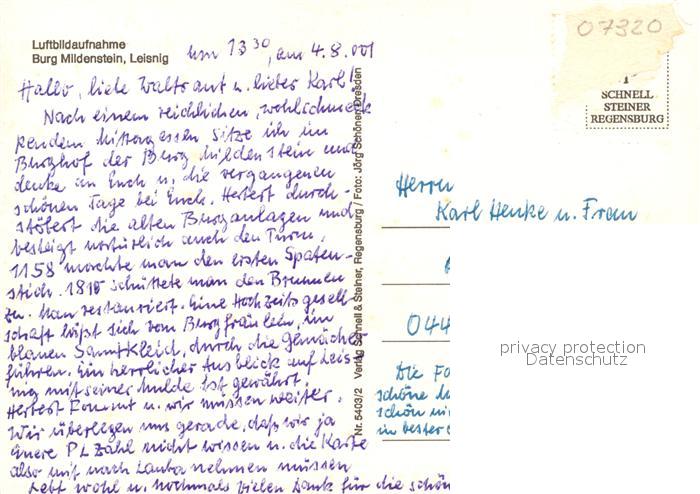 Luftbildaufnahme
Burg Mildenstein, Leisnig
um 13³⁰, am 4.8.001
Hallo, liebe Waltraut u. lieber Karl!
Nach einem reichlichen, wohlschmeck
kendem Mittagessen sitze ich im
Burghof der Burg Mildenstein und
denke an Euch u. die vergangenen
schönen Tage bei Euch. Herbert durch-
stöbert die alten Burganlagen und
besteigt natürlich auch den Turm.
1158 machte man den ersten Spaten-
stich. 1815 schüttete man den Brunnen
zu. Man restauriert. Eine Hochzeitsgesell-
schaft läßt sich vom Burgfräulein, im
blauen Samtkleid, durch die Gemächer
führen. Ein herrlicher Ausblick auf Leis-
nig mit seiner Mulde ist gewährt.
Herbert kommt u. wir müssen weiter.
Wir überlegen uns gerade, daß wir ja
Eure PLZahl nicht wissen u. die Karte
also mit nach Lauba nehmen müssen
Lebt wohl u. nochmals vielen Dank für die schön
Nr. 5403/2 Verlag Schnell & Steiner, Regensburg / Foto: Jörg Schöner, Dresden
07320
SCHNELL
STEINER
REGENSBURG
Herrn
Karl Henke u. Frau
044
privacy protection
Datenschutz
Die Fo
schöne
schön
in bester